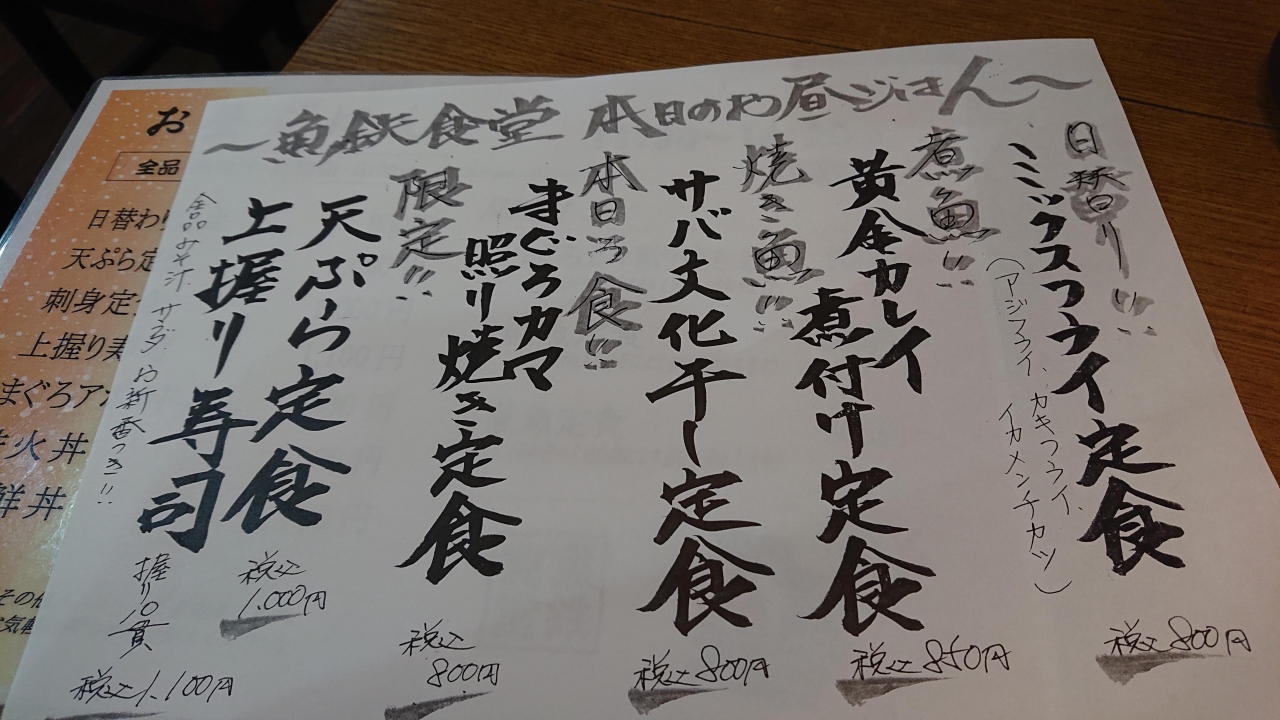 ～魚鉄食堂 本日のお昼ごはん～
日替り!!
ミックスフライ定食
(アジフライ、カキフライ、
イカメンチカツ)
税込800円
煮魚!!
黄金カレイ
煮付け定食
税込850円
焼き魚!!
サバ文化干し定食
税込800円
本日の食!!
まぐろカマ
照り焼き定食
税込
800円
限定!!
天ぷら定食
税込
1,000円
上握り寿司
握り10貫
税込1,100円
全品みそ汁、サラダ、お新香つき!!
お
全品
日替わり
天ぷら定
刺身定
上握り寿
まぐろア
火丼
鮮丼